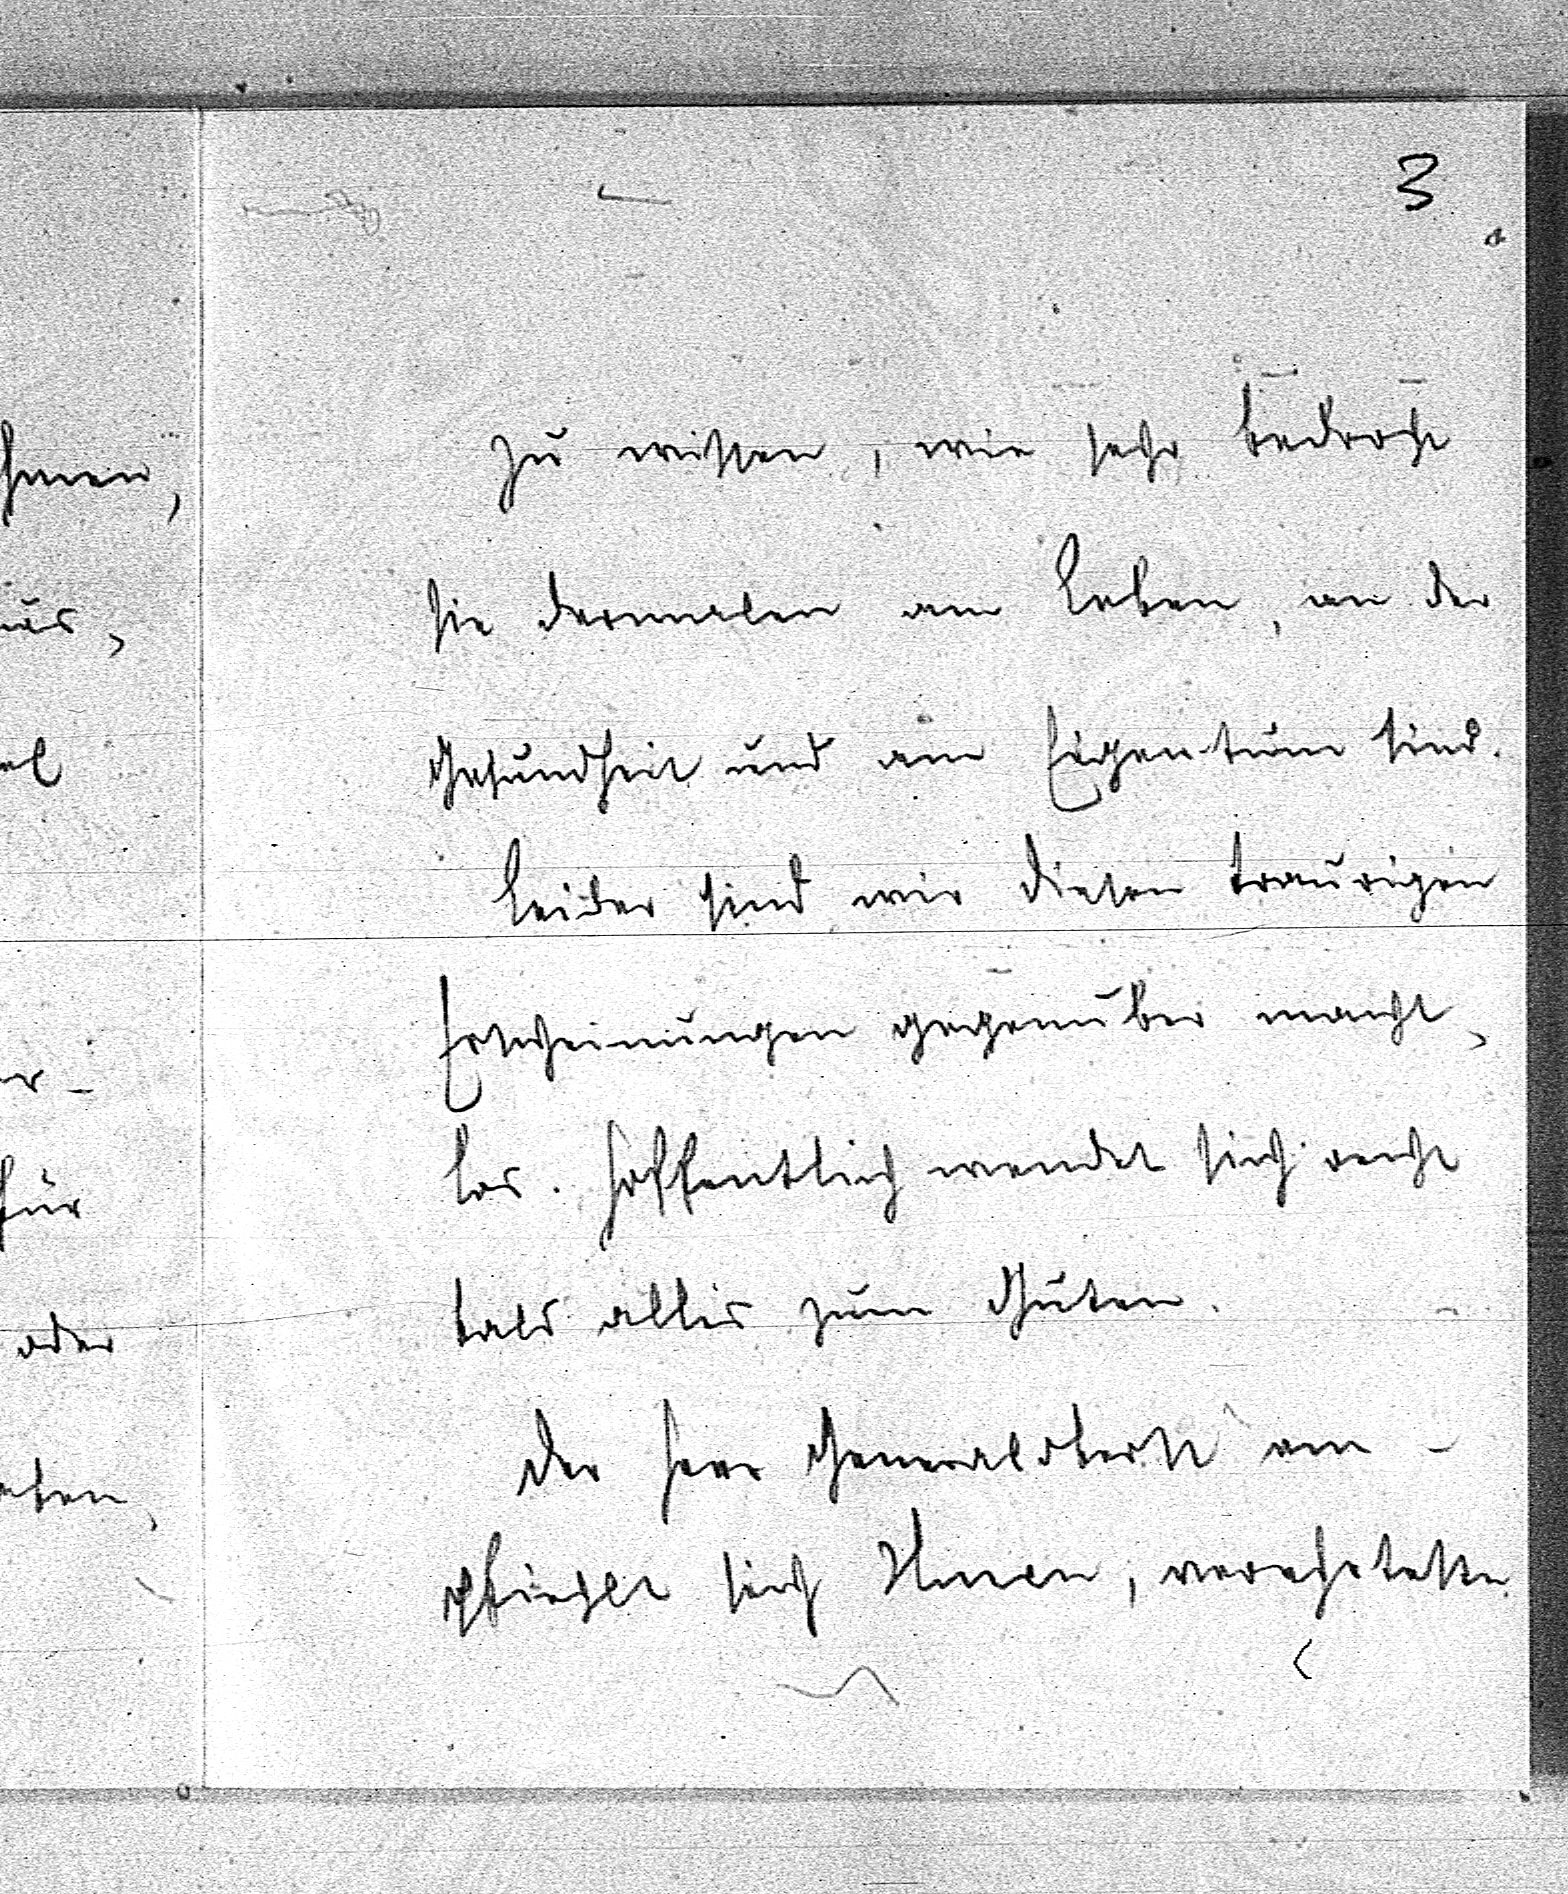 3
zu wissen, wie sehr bedroht
sie dermalen am Leben, an der
Gesundheit und am Eigentum sind.
Leider sind wir diesen traurigen
Erscheinungen gegenüber macht-
los. Hoffentlich wendet sich recht
bald alles zum Guten.
Der Herr Generaloberst em-
pfiehlt sich Ihnen, verehrteste
für
oder